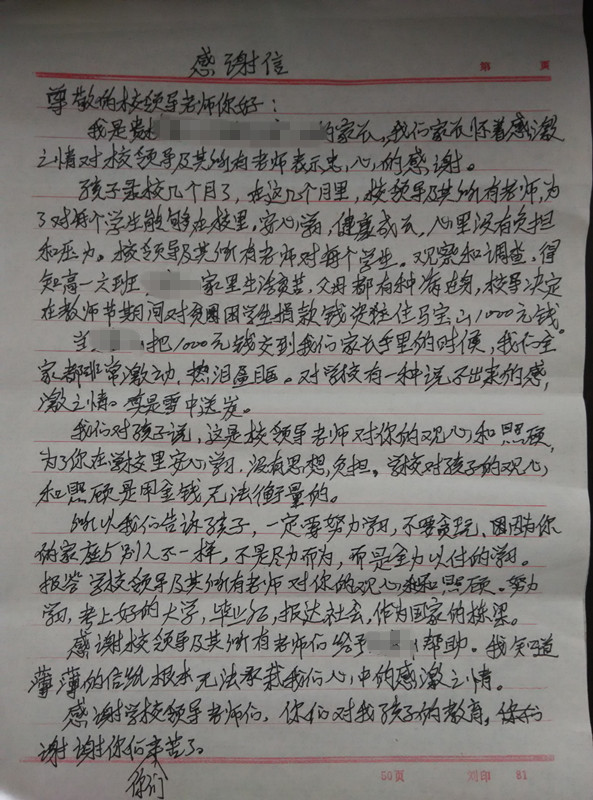 感谢信
第 页
尊敬的校领导老师你好：
我是贵校 的家长，我们家长怀着感激
之情对校领导及其所有老师表示忠心的感谢。
孩子录校几个月了，在这几个月里，校领导及其所有老师，为
了对每个学生能够在校里，安心学习，健康成长，心里没有负担
和压力。校领导及其所有老师对每个学生。观察和调查，得
知高一文班 家里生活贫苦，父母都有种病过身，校导决定
在教师节期间对贫困学生捐款钱 1000元钱。
当 把1000元钱交到我们家长手里的时候，我们全
家都非常激动，热泪盈眶。对学校有一种说不出来的感
激之情。真是雪中送炭。
我们对孩子说，这是校领导老师对你的观心和照顾，
为了你在学校里安心学习，没有思想负担。学校对孩子的观心
和照顾是用金钱无法衡量的。
所以我们告诉了孩子，一定要努力学习，不要贪玩，因为你
的家庭与别人不一样，不是尽力而为，而是全力以付的学习。
报答学校领导及其所有老师对你的观心和照顾。努力
学习，考上好的大学，毕业后，报达社会，作为国家的栋梁。
感谢校领导及其所有老师们给予 帮助。我知道
薄薄的信纸根本无法承载我们心中的感激之情。
感谢学校领导老师们，你们对我孩子的教育，
谢谢你们辛苦了。
你们
50页 刘印 81